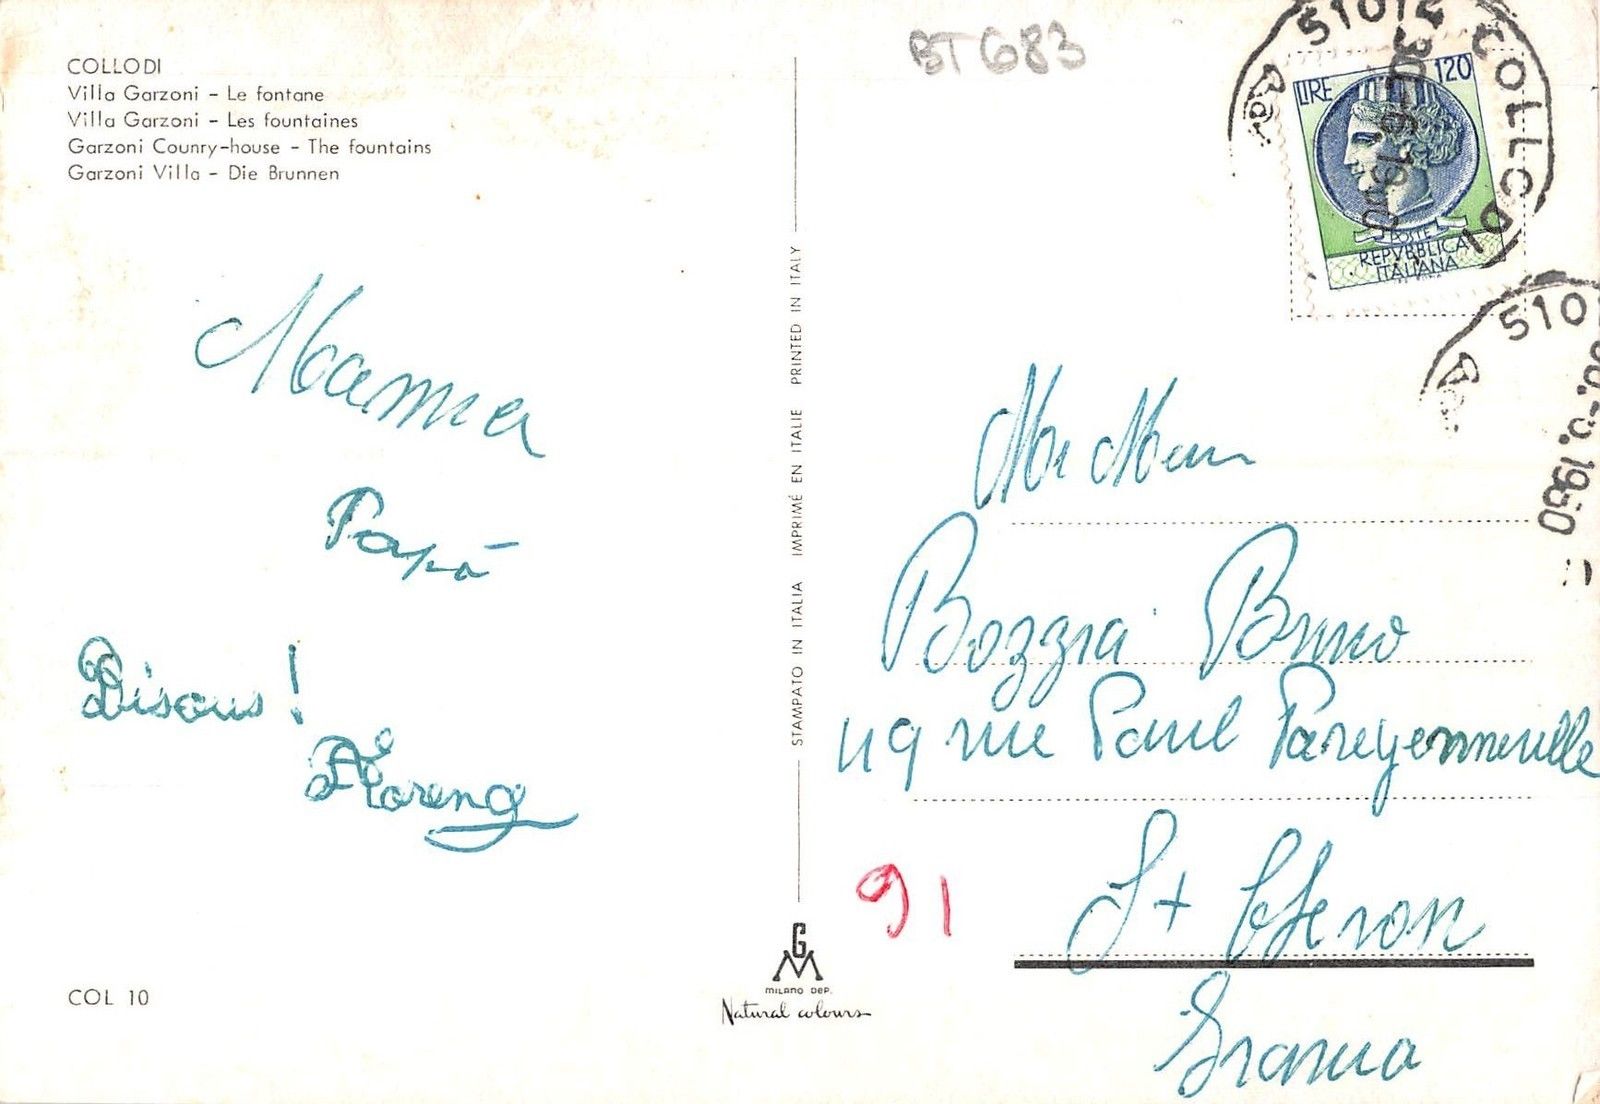 COLLODI
Villa Garzoni - Le fontane
Villa Garzoni - Les fountaines
Garzoni Counry-house - The fountains
Garzoni Villa - Die Brunnen
Mamma
Papà
Bisous !
COL 10
STAMPATO IN ITALIA IMPRIMÉ EN ITALIE PRINTED IN ITALY
GM
MILANO DEP.
Natural colours
BT 683
51014 COLLODI
LIRE 120
POSTE
REPVBBLICA
ITALIANA
510
Bruno
49 rue Paul
91
St Chéron